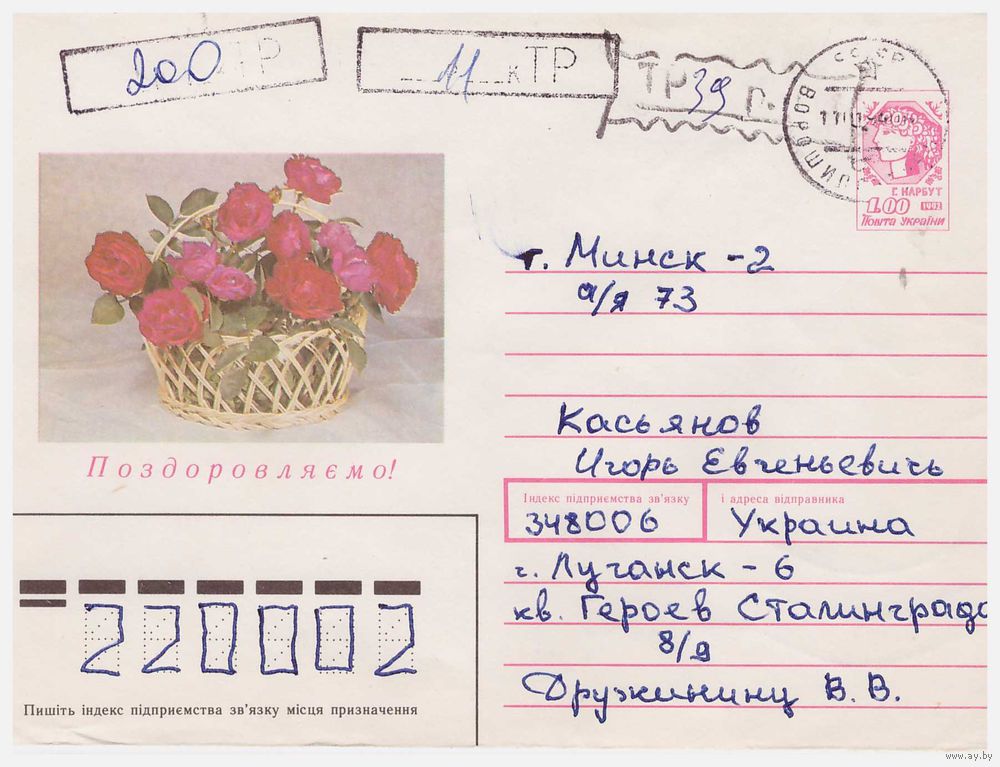 200 ТР
11 к ТР
ТР 39 р.
СССР
ВОРОШИЛ
Г. НАРБУТ
1.00 1992
ПОШТА УКРАЇНИ
г. Минск - 2
а/я 73
Касьянов
Игорь Евгеньевичь
Поздоровляємо!
Індекс підприємства зв'язку і адреса відправника
348006 Украина
г. Луганск - 6
кв. Героев Сталинграда
8/9
Дружинину В. В.
220002
Пишіть індекс підприємства зв'язку місця призначення
www.ay.by